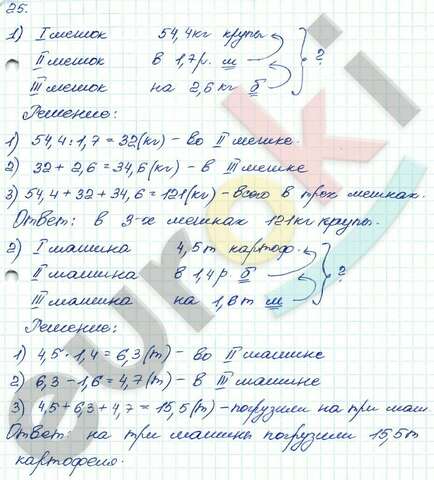 25.
1) I мешок 54,4 кг крупы
II мешок в 1,7 р. м ?
III мешок на 2,6 кг б
Решение:
1) 54,4 : 1,7 = 32 (кг) - во II мешке.
2) 32 + 2,6 = 34,6 (кг) - в III мешке
3) 54,4 + 32 + 34,6 = 121 (кг) - всего в трёх мешках.
Ответ: в 3-х мешках 121 кг крупы.
2) I машина 4,5 т картоф.
II машина в 1,4 р. б ?
III машина на 1,6 т м
Решение:
1) 4,5 · 1,4 = 6,3 (т) - во II машине
2) 6,3 - 1,6 = 4,7 (т) - в III машине
3) 4,5 + 6,3 + 4,7 = 15,5 (т) - погрузили на три маш.
Ответ: на три машины погрузили 15,5 т
картофеля.
euroki